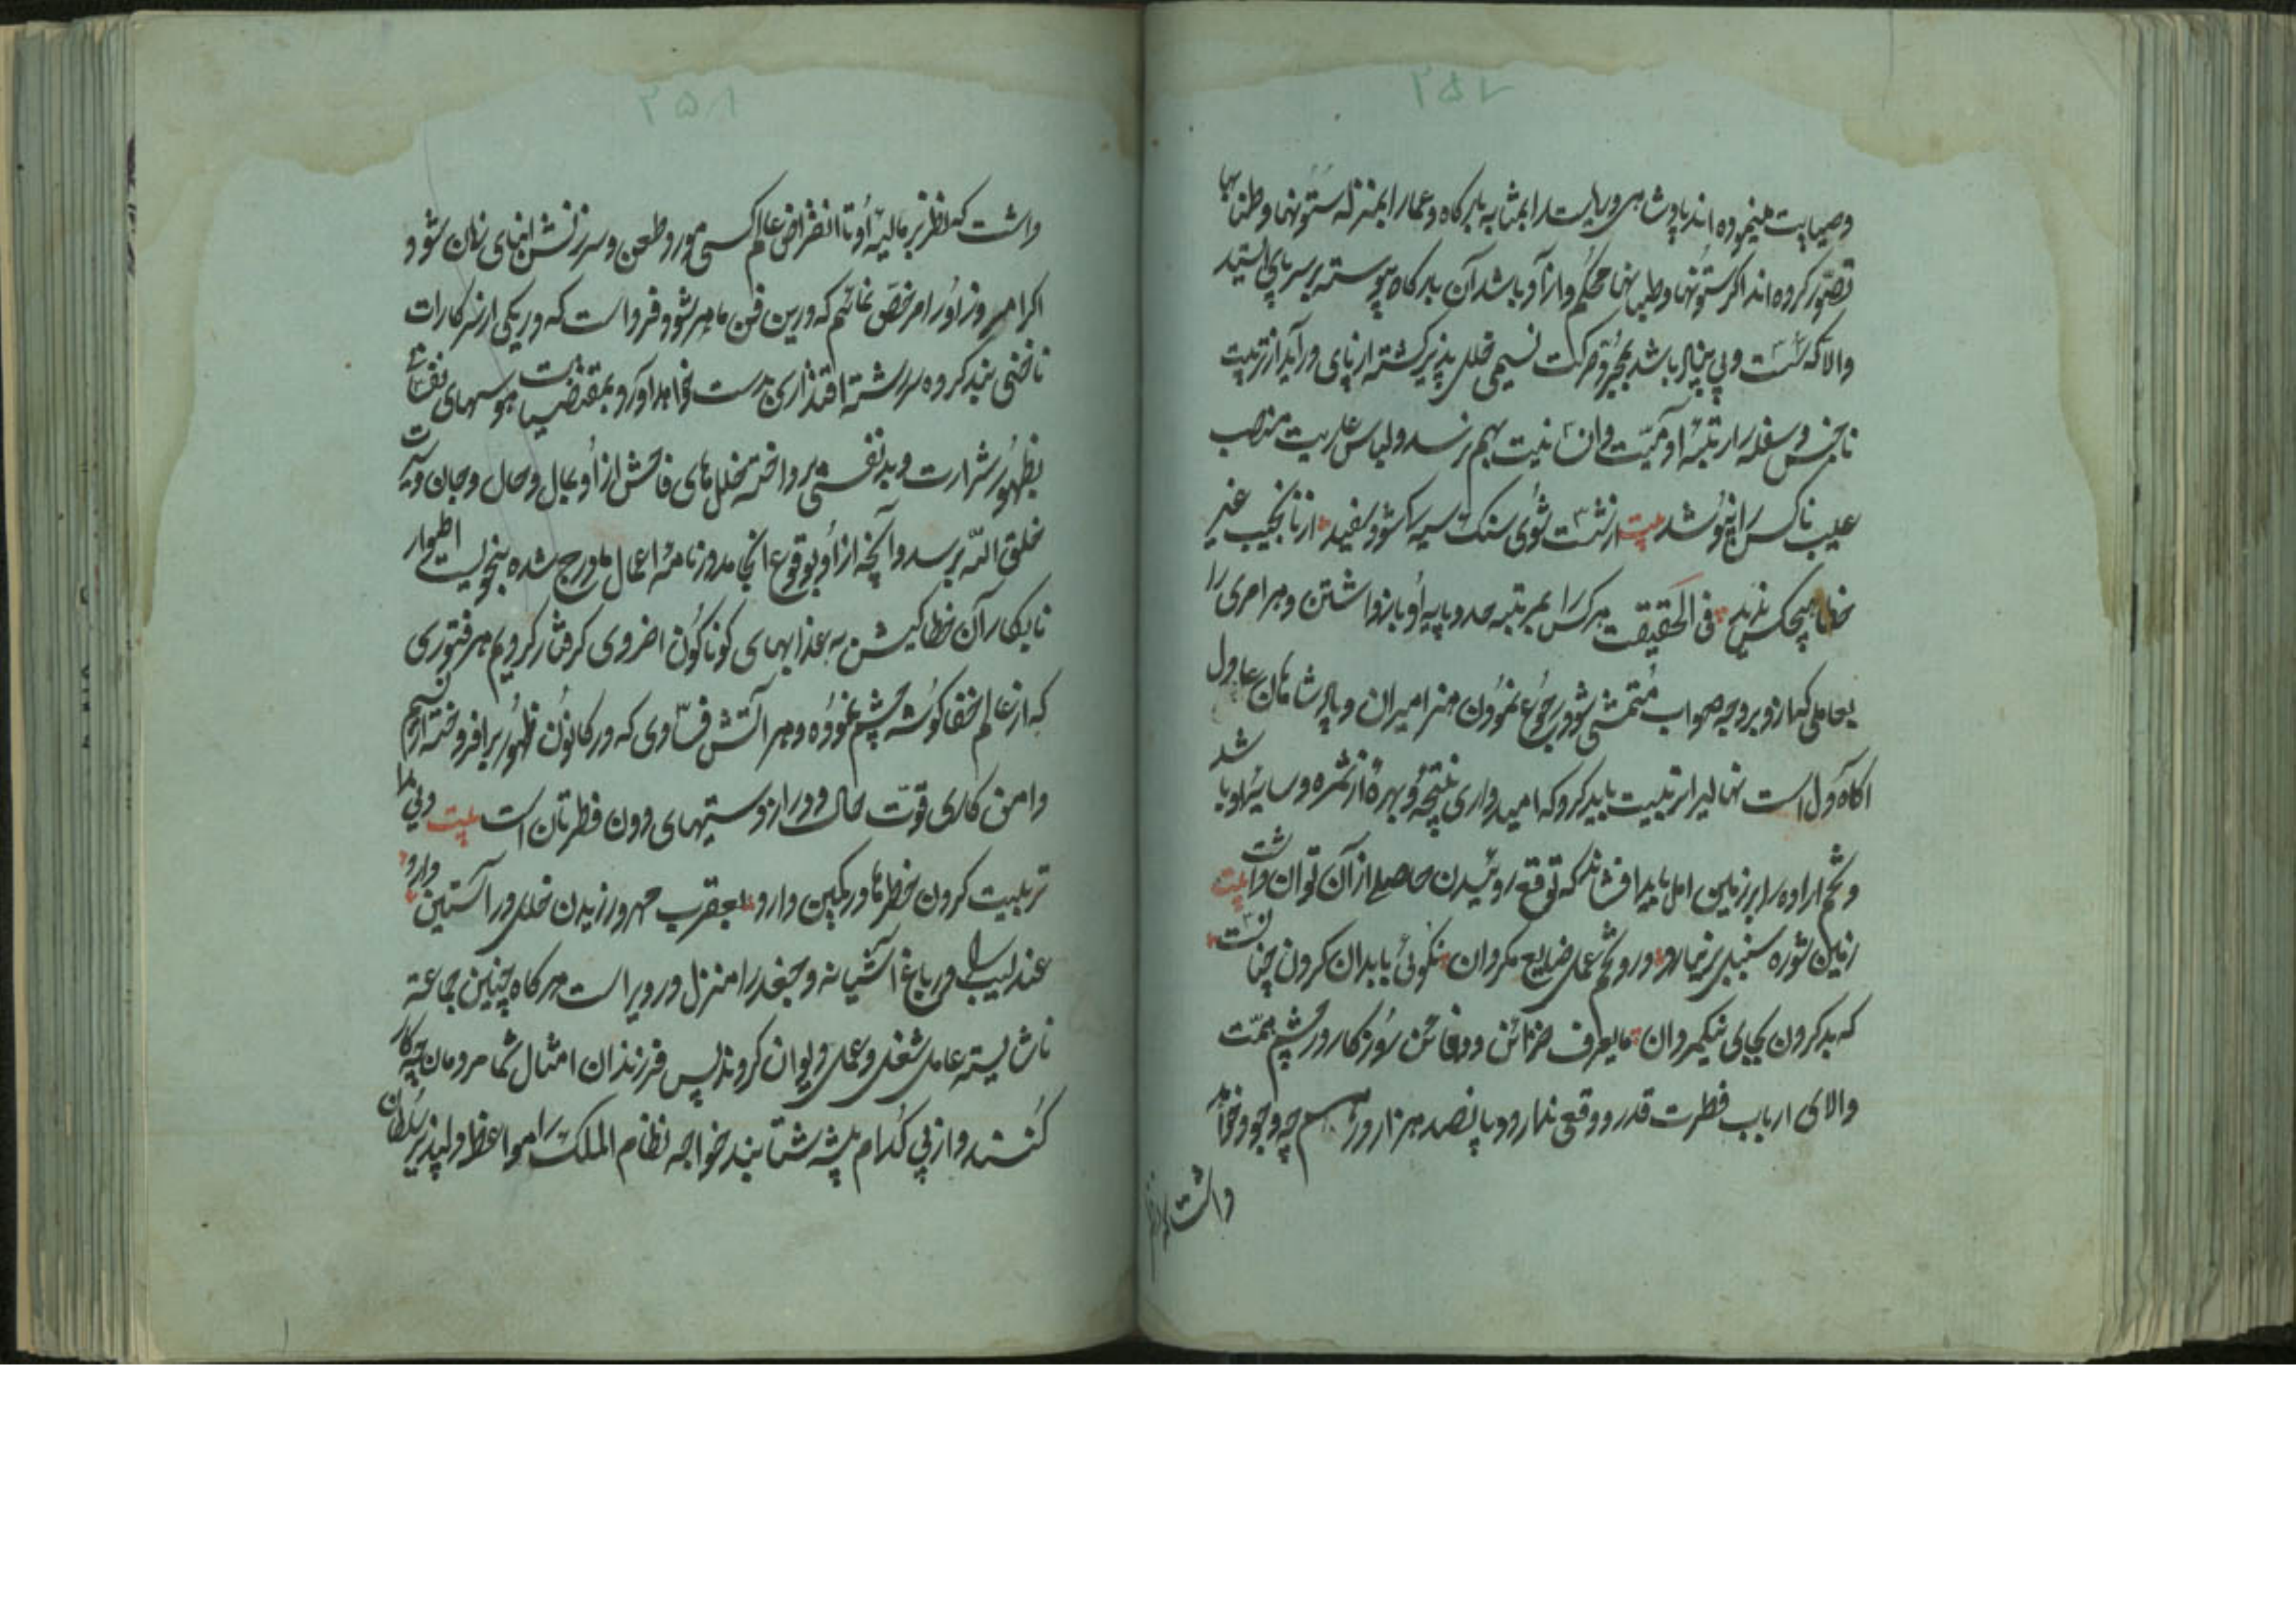 وصیابت مینموده اند پادشاهی و ریاست را بمثابه بارکاه و عمار ابمنزله ستونها و طنابها
تصور کرده اند اکر ستونها و طنابها محکم و از آد باشد آن بارکاه پیوسته بر سر پای استد
والا که سست و بی بنیاد باشد بمجرد حرکت نسیمی خلل پذیر کشته از پای در آید از تربیت
ناجنس و سفله را رتبه آدمیت و انسانیت بهم نرسد و لباس عاریت منصب
عیب ناکس را نپوشد بیت از شست شوی سنک سیه کی شود سفید از نانجیب غیر
خطا هیچکس ندید فی الحقیقت هر کس را بمرتبه حد و پایه او بازداشتن و هر امری را
بعاملی که از و بر وجه صواب متمشی شود رجوع نمودن هنر امیران و پادشاهان عادل
اکاه دل است نهالیرا تربیت باید کرد که امیدواری نتیجه و بهره از ثمره و سایه او باشد
و تخم اراده را بر زمین امل باید افشاند که توقع روئیدن حاصلی از آن توان داشت بیت
زمین شوره سنبل بر نیارد در و تخم عمل ضایع مکردان نکوئی با بدان کردن چنانست
که بد کردن بجای نیکمردان مایعرف خزائن و دفائن روزکار در چشم همت
والای ارباب فطرت قدر و وقعی ندارد و پانصد هزار درهم چه وجود خواهد
داشت که از نظر
۲۵۲
۲۵۸
داشت که از نظر تربیت عالیه او تا انقراض عالم کسی مورد طعن و سرزنش ابنای زمان شود و
اکر امروز او را مرخص نمائیم که درین فن ماهر شود فرداست که در یکی از سرکارات
ناخنی بند کرده سررشته اقتداری بدست خواهد آورد و بمقتضیات هوسهای نفسانی
بظهور شرارت و بد نفسی پرداخته خللهای فاحش از او بمال و حال و جان و سیرت
خلق الله برسد و آنچه از او بوقوع انجامد در نامه اعمال ما درج شده بنحوست اطوار
نابکار آن خطاکیش به عذابهای کوناکون اخروی کرفتار کردیم هر فتوری
که از عالم خفا کوشه چشم نموده و هر آتش فسادی که در کانون ظهور برافروخته از نسیم
وامن کاری قوت حال و دراز دستیهای دون فطرتان است بیت دنی را
تربیت کردن خطرها در کمین دارد بعقرب مهر ورزیدن خلل در آستین دارد
عندلیب را در باغ آشیانه و جغد را منزل در ویراست هر کاه چنین جماعة
ناشایسته عامل شغل و عمل دیوان کردند پس فرزندان امثال شما مردمان چه کار
کنند و از پی کدام پیشه شتابند خواجه نظام الملک را مواعظ دلپذیر سلطان